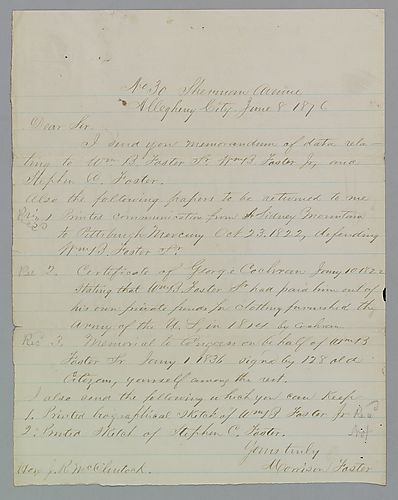 No 30 Sherman Avenue
Allegheny City June 8 1876
Dear Sir.
I send you memorandum of data rela-
ting to Wm B Foster Sr. Wm B Foster Jr, and
Stephen C. Foster.
Also the following papers to be returned to me
1 Printed communication from Sidney
to Pittsburgh Mercury Oct 23. 1822, defending
Wm B. Foster Sr.
2. Certificate of George Cochran 1822
stating that Wm B Foster Sr had paid him out of
his own private funds for furnished the
Army of the U. S, in by Cochran
3. Memorial to Congress on behalf of Wm B
Foster Sr. 1 1836 signed by 128 old
Citizens, yourself among the rest.
I also send the following which you can keep
1. Printed biographical Sketch of Wm B Foster Jr
2. Printed Sketch of Stephen C. Foster.
Yours truly
Morrison Foster
McClintock.